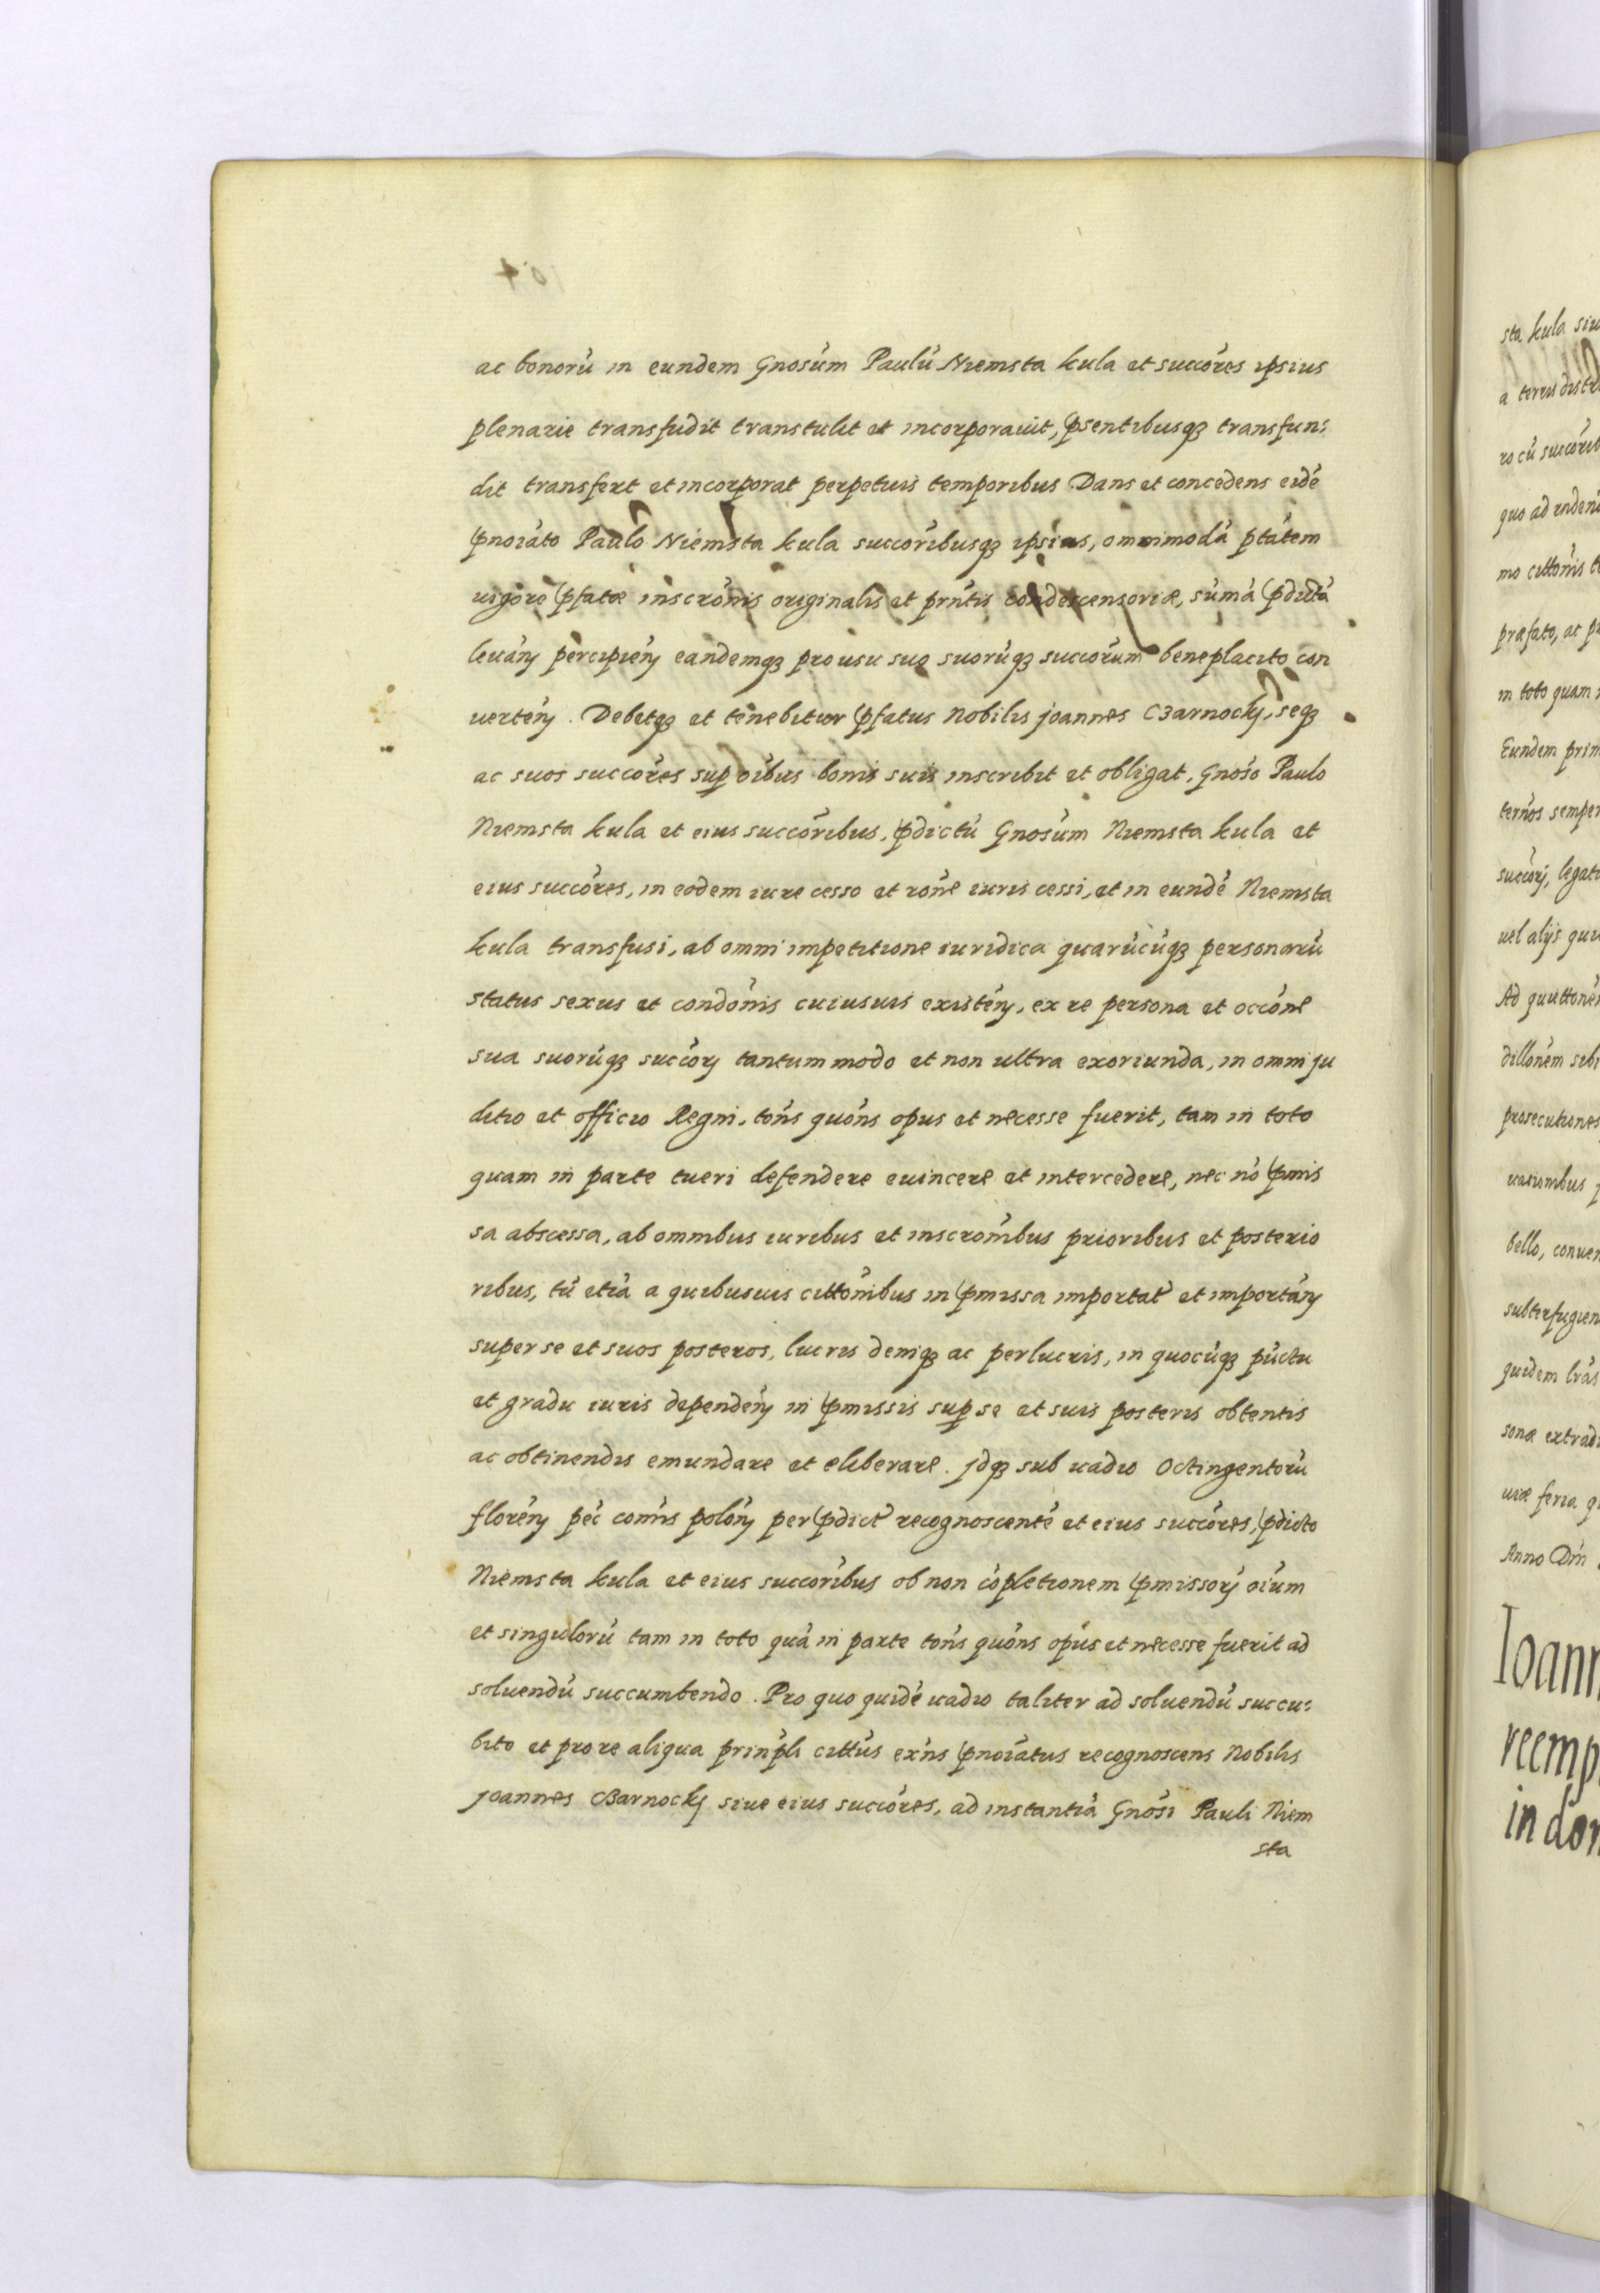 ac bonorū in eundem Gnosum Paulū Niemsta kula et succōres ipsius
plenarie transfudit transtulit et incorporauit, ꝑsentibusqꝫ transfun:
dit transfert et incorporat perpetuis temporibus Dans et concedens eidē
ꝑnoīato Paulo Niemsta kula succōribusqꝫ ipsius, omnimodā ptātem
uigore ꝑfatæ inscrōnis originalis et prn̄tis condescensoriæ, sūmā ꝑdictā
leuān̄ percipien̄ eandemqꝫ pro usu suo suorūqꝫ succōrum beneplacito con
uerten̄. Debetqꝫ et tenebitur ꝑfatus Nobilis Joannes Czarnockj, seqꝫ
ac suos succōres suꝑ oībus bonis suis inscribit et obligat, Gnōso Paulo
Niemsta kula et eius succōribus, ꝑdictū Gnosūm Niemsta kula et
eius succōres, in eodem iure cesso et rōne iuris cessi, et in eundē Niemsta
kula transfusi, ab omni impetitione iuridica quarūcūqꝫ personarū
status sexus et condōnis cuiusuis existen̄, ex re persona et occōne
sua suorūqꝫ succōrꝫ tantummodo et non ultra exoriunda, in omni ju
ditio et officio Regni, tōns quōns opus et necesse fuerit, tam in toto
quam in parte tueri defendere euincere et intercedere, nec nō ꝑmis
sa abscessa, ab omnibus iuribus et inscrōnibus prioribus et posterio
ribus, tū etiā a quibusuis cittōnibus in ꝑmissa importat̄ et importān̄
super se et suos posteros, lucris deniqꝫ ac perlucris, in quocūqꝫ pūctu
et gradu iuris dependen̄ in ꝑmissis suꝑ se et suis posteris obtentis
ac obtinendis emundare et eliberare. Jdqꝫ sub uadio Octingentorū
floren̄ pec̄ cōm̄is polōn̄ per ꝑdict̄ recognoscentē et eius succōres, ꝑdicto
Niemsta kula et eius succōribus ob non cōpletionem ꝑmissorꝫ oīum
et singulorū tam in toto quā in parte tōns quōns opus et necesse fuerit ad
soluendū succumbendo. Pro quo quidē uadio taliter ad soluendū succu:
bito et pro re aliqua prin̄pli cittūs exn̄s ꝑnoīatus recognoscens Nobilis
Joannes Czarnockj siue eius succōres, ad instantiā Gnōsi Pauli Niem
sta
sta kula siu
a terris distr
ro cū succōrib
quo ad
mo cittōnis
præfato, ac
in toto quam
Eundem prim
ternōs semper
succōrꝫ, legat
uel alijs qui
Ad quittōnē
dillōnem sibi
prosecutiones
bello, conuen
subterfugien
quidem lrās
sonæ extrad
uiæ feria q
Anno Dn̄i
Ioann
reemp
in dor